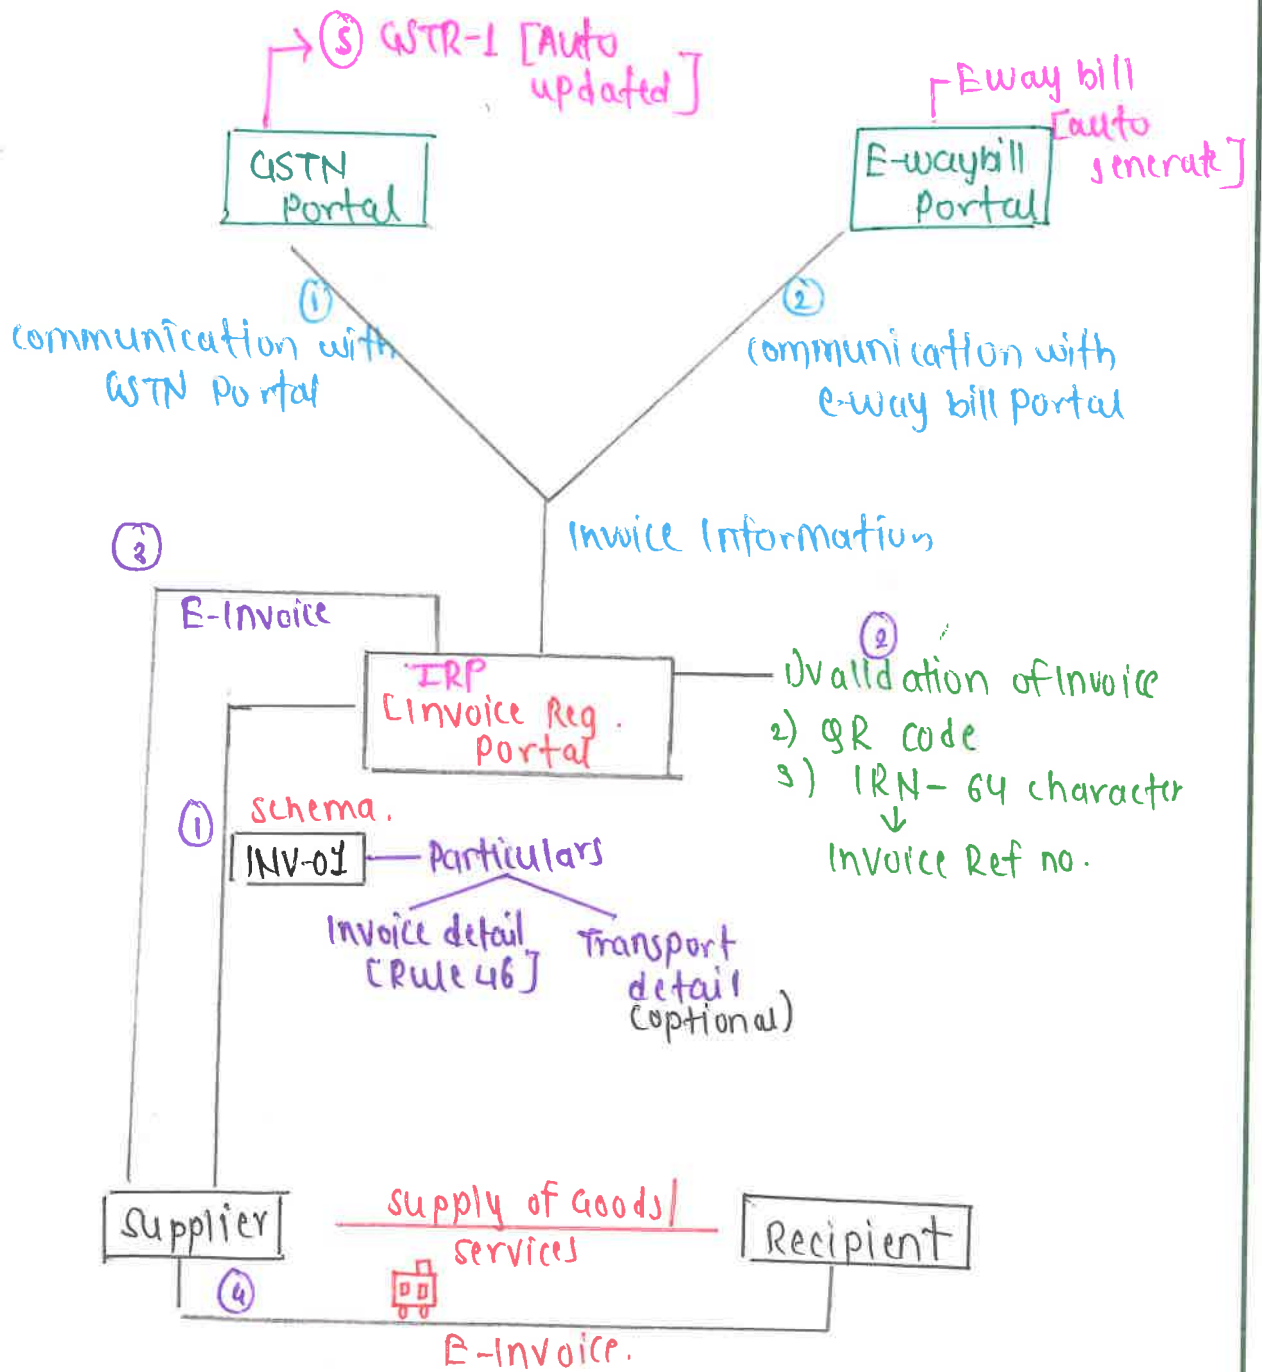 ⑤ GSTR-1 [Auto
updated]
Eway bill
[auto
generate]
GSTN
Portal
E-waybill
Portal
①
communication with
GSTN Portal
②
communication with
e-way bill portal
Invoice Information
③
E-Invoice
IRP
[Invoice Reg.
Portal
②
1) validation of Invoice
2) QR code
3) IRN- 64 character
↓
Invoice Ref no.
①
schema.
INV-01
Particulars
Invoice detail
[Rule 46]
Transport
detail
(optional)
Supplier
supply of Goods/
services
Recipient
④
E-Invoice.